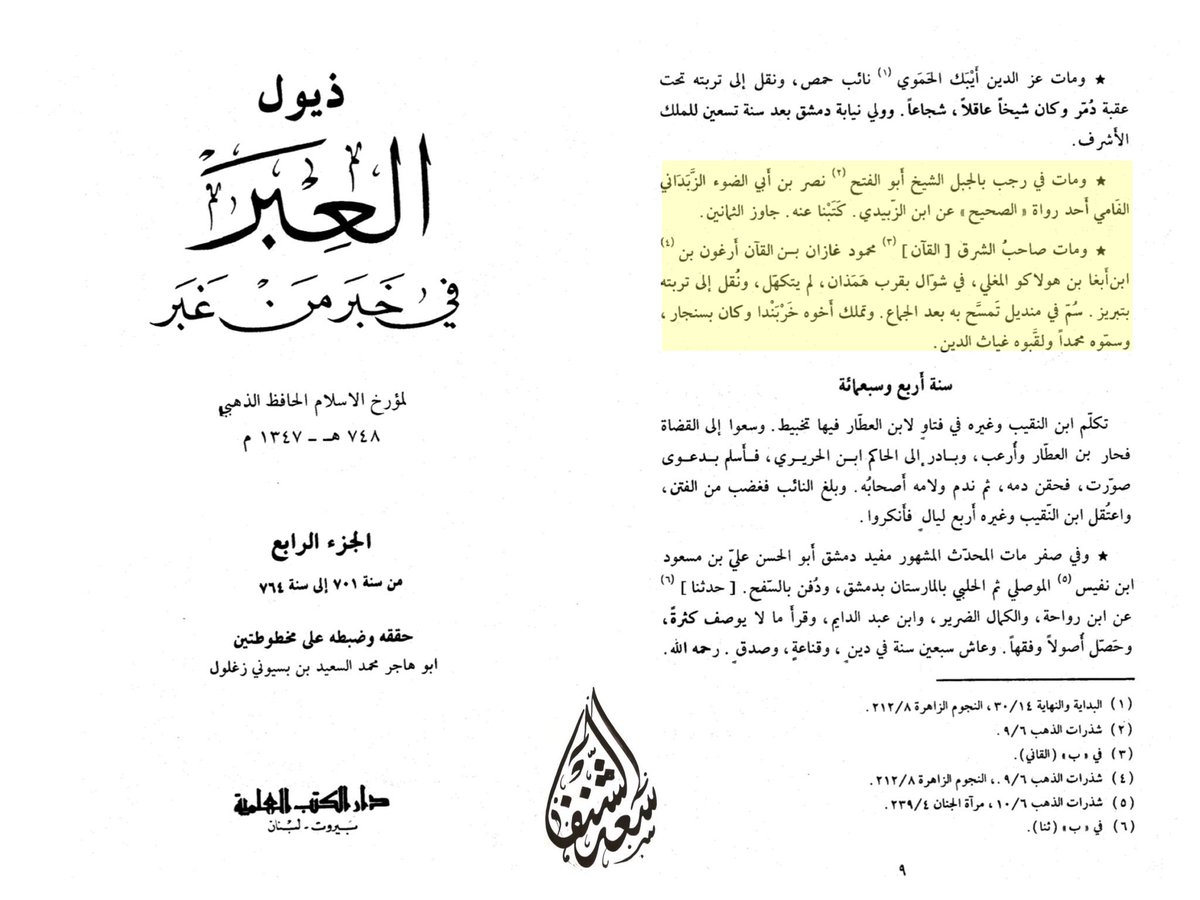 ★ ومات عز الدين أَيْبَك الحَمَوي (١) نائب حمص، ونقل إلى تربته تحت
عقبة دُمّر وكان شيخاً عاقلاً، شجاعاً. وولي نيابة دمشق بعد سنة تسعين للملك
الأشرف.
★ ومات في رجب بالجبل الشيخ أبو الفتح (٢) نصر بن أبي الضوء الزَّبَدَاني
الفَامي أحد رواة «الصحيح» عن ابن الزّبيدي. كَتَبْنا عنه. جاوز الثمانين.
★ ومات صاحبُ الشرق [القآن] (٣) محمود غازان بـن القآن أرغون بن (٤)
ابن أبغا بن هولاكو المغلي، في شوّال بقرب هَمَذان، لم يتكهّل، ونُقل إلى تربته
بتبريز. سُمّ في منديل تَمسَّح به بعد الجماع. وتملك أخوه خَرْبَنْدا وكان بسنجار،
وسمّوه محمداً ولقَّبوه غياث الدين.
سنة أربع وسبعمائة
تكلّم ابن النقيب وغيره في فتاوٍ لابن العطّار فيها تخبيط. وسعوا إلى القضاة
فحار بن العطّار وأرعب، وبـادر إلى الحاكم ابـن الحريـري، فـأسلم بـدعـوى
صوّرت، فحقن دمه، ثم ندم ولامه أصحابُه. وبلغ النائب فغضب من الفتن،
واعتُقل ابن النّقيب وغيره أربع ليالٍ فأنكروا.
★ وفي صفر مات المحدّث المشهور مفيد دمشق أبو الحسن عليّ بن مسعود
ابن نفيس (٥) الموصلي ثم الحلبي بالمارستان بدمشق، ودُفن بالسّفح. [حدثنا] (٦)
عن ابن رواحة، والكمال الضرير، وابن عبد الدايم، وقرأ ما لا يوصف كثرةً،
وحَصّل أصولاً وفقهاً. وعاش سبعين سنة في دينٍ، وقناعةٍ، وصدقٍ. رحمه الله.
(١) البداية والنهاية ٣٠/١٤، النجوم الزاهرة ٢١٢/٨.
(٢) شذرات الذهب ٩/٦.
(٣) في «ب» (القاني).
(٤) شذرات الذهب ٩/٦.، النجوم الزاهرة ٢١٢/٨.
(٥) شذرات الذهب ١٠/٦، مرآة الجنان ٢٣٩/٤.
(٦) في «ب» (ثنا).
٩
ذيول
العِبَر
في خَبَر مَنْ غَبَر
لمؤرخ الاسلام الحافظ الذهبي
٧٤٨ هـ - ١٣٤٧ م
الجزء الرابع
من سنة ٧٠١ إلى سنة ٧٦٤
حققه وضبطه على مخطوطتين
ابو هاجر محمد السعيد بن بسيوني زغلول
دار الكتب العلمية
بَيروت - لبْنان
سعد الشنفا